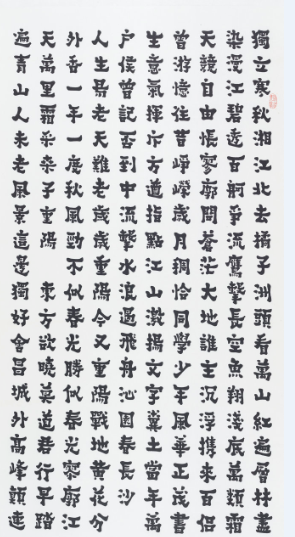 獨立寒秋湘江北去橘子洲頭看萬山紅遍層林盡
染漫江碧透百舸爭流鷹擊長空魚翔淺底萬類霜
天競自由悵寥廓問蒼茫大地誰主沉浮攜來百侶
曾游憶往昔崢嶸歲月稠恰同學少年風華正茂書
生意氣揮斥方遒指點江山激揚文字糞土當年萬
户侯曾記否到中流擊水浪遏飛舟 沁園春長沙
人生易老天難老歲歲重陽今又重陽戰地黃花分
外香一年一度秋風勁 不似春光勝似春光寥廓江
天萬里霜 采桑子重陽 東方欲曉莫道君行早踏
遍青山人未老風景這邊獨好會昌城外高峰顛連